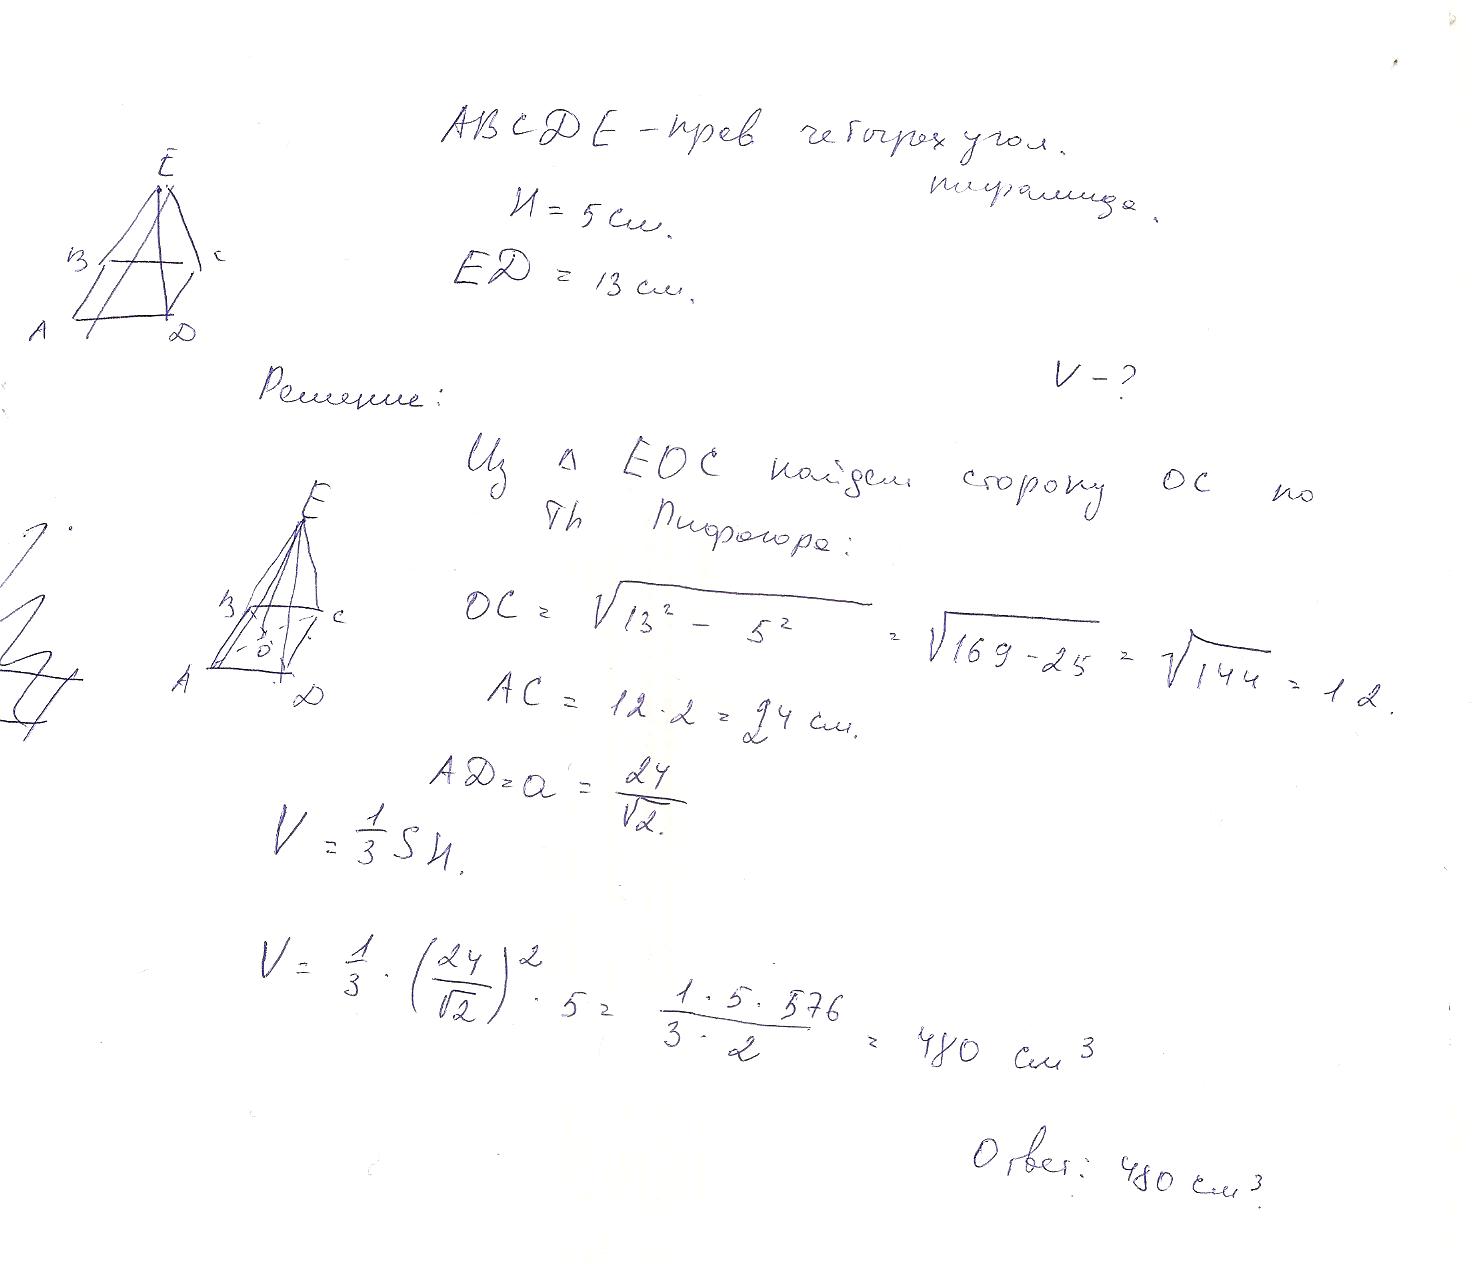 ABCDE - прав четырех угол.
пирамида.
H = 5 см.
ED = 13 см.
E
B
C
A
D
V - ?
Решение:
Из Δ EOC найдем сторону OC по
Th Пифагора:
E
B
C
O
A
D
OC = √(13² - 5²) = √(169 - 25) = √144 = 12.
AC = 12 · 2 = 24 см.
AD = a = 24/√2.
V = 1/3 SH.
V = 1/3 · (24/√2)² · 5 = (1 · 5 · 576)/(3 · 2) = 480 см³
Ответ: 480 см³.